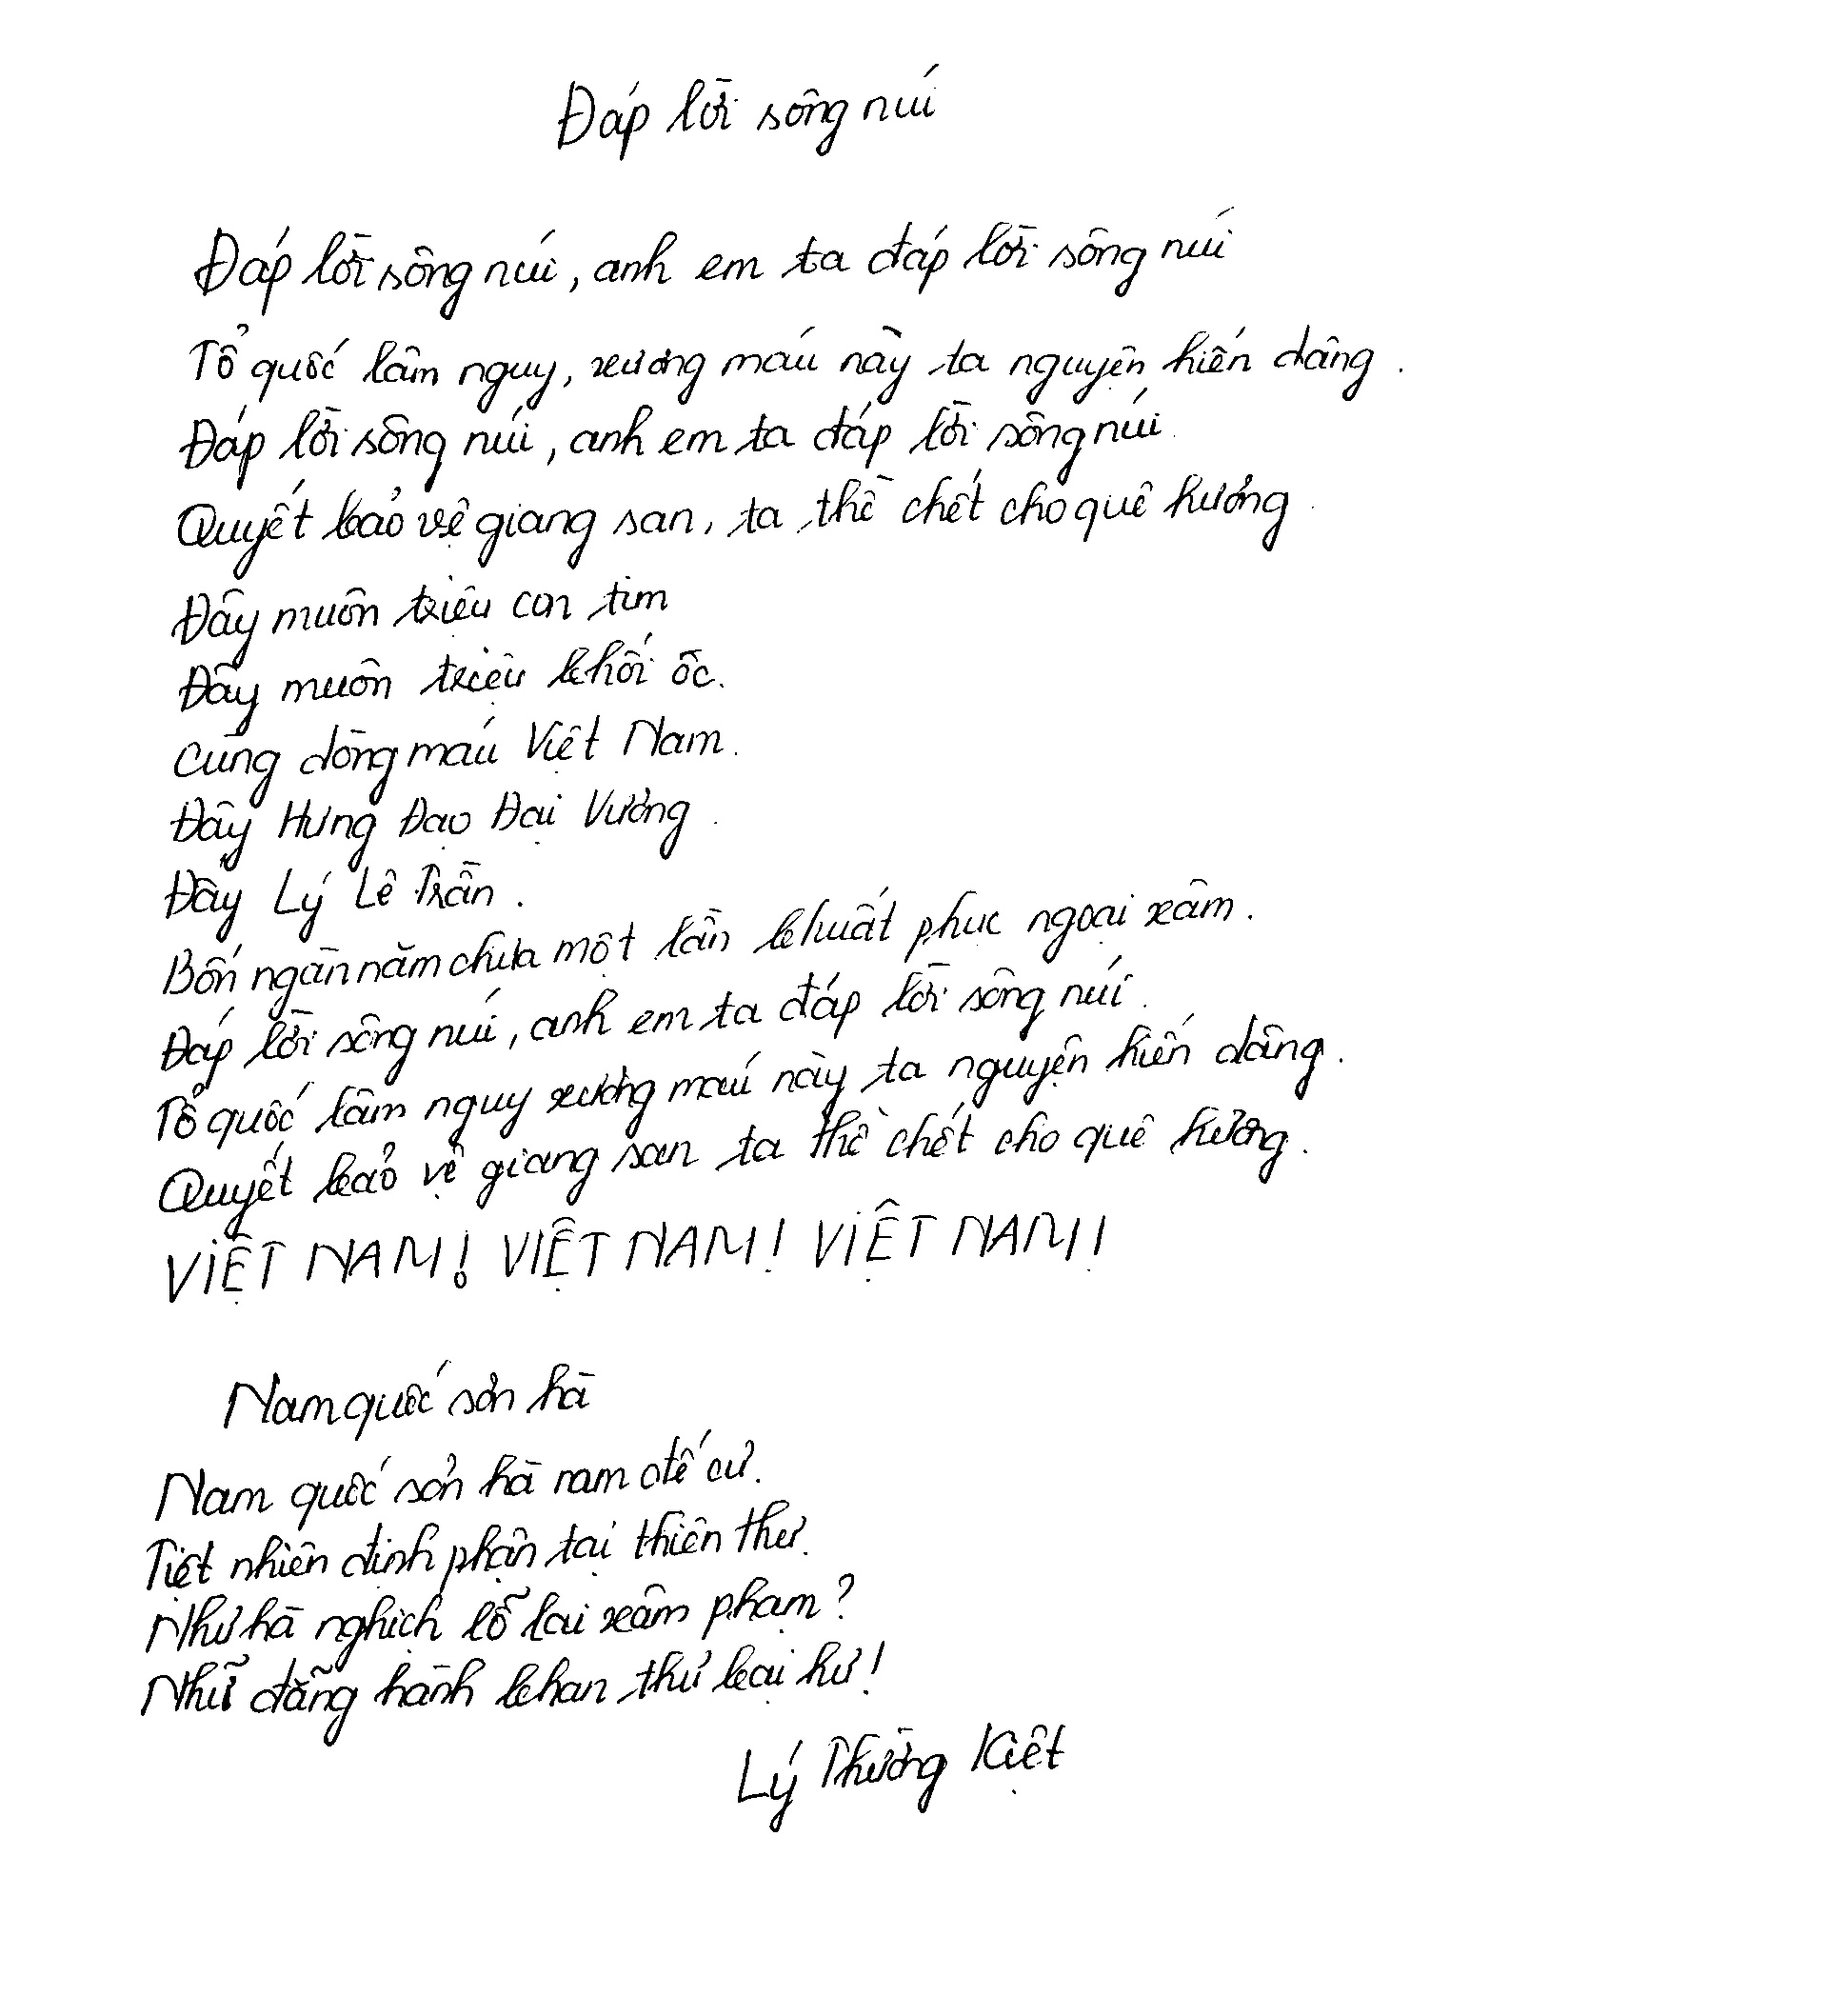 Đáp lời sông núi
Đáp lời sông núi, anh em ta đáp lời sông núi
Tổ quốc lâm nguy, xương máu này ta nguyện hiến dâng.
Đáp lời sông núi, anh em ta đáp lời sông núi.
Quyết bảo vệ giang san, ta thề chết cho quê hương.
Đây muôn triệu con tim
Đây muôn triệu khối óc.
Cùng dòng máu Việt Nam.
Đây Hưng Đạo Đại Vương.
Đây Lý Lê Trần.
Bốn ngàn năm chưa một lần khuất phục ngoại xâm.
Đáp lời sông núi, anh em ta đáp lời sông núi.
Tổ quốc lâm nguy xương máu này ta nguyện hiến dâng.
Quyết bảo vệ giang san ta thề chết cho quê hương.
VIỆT NAM! VIỆT NAM! VIỆT NAM!
Nam quốc sơn hà
Nam quốc sơn hà nam đế cư.
Tiệt nhiên định phận tại thiên thư.
Như hà nghịch lỗ lai xâm phạm?
Nhữ đẳng hành khan thủ bại hư!
Lý Thường Kiệt